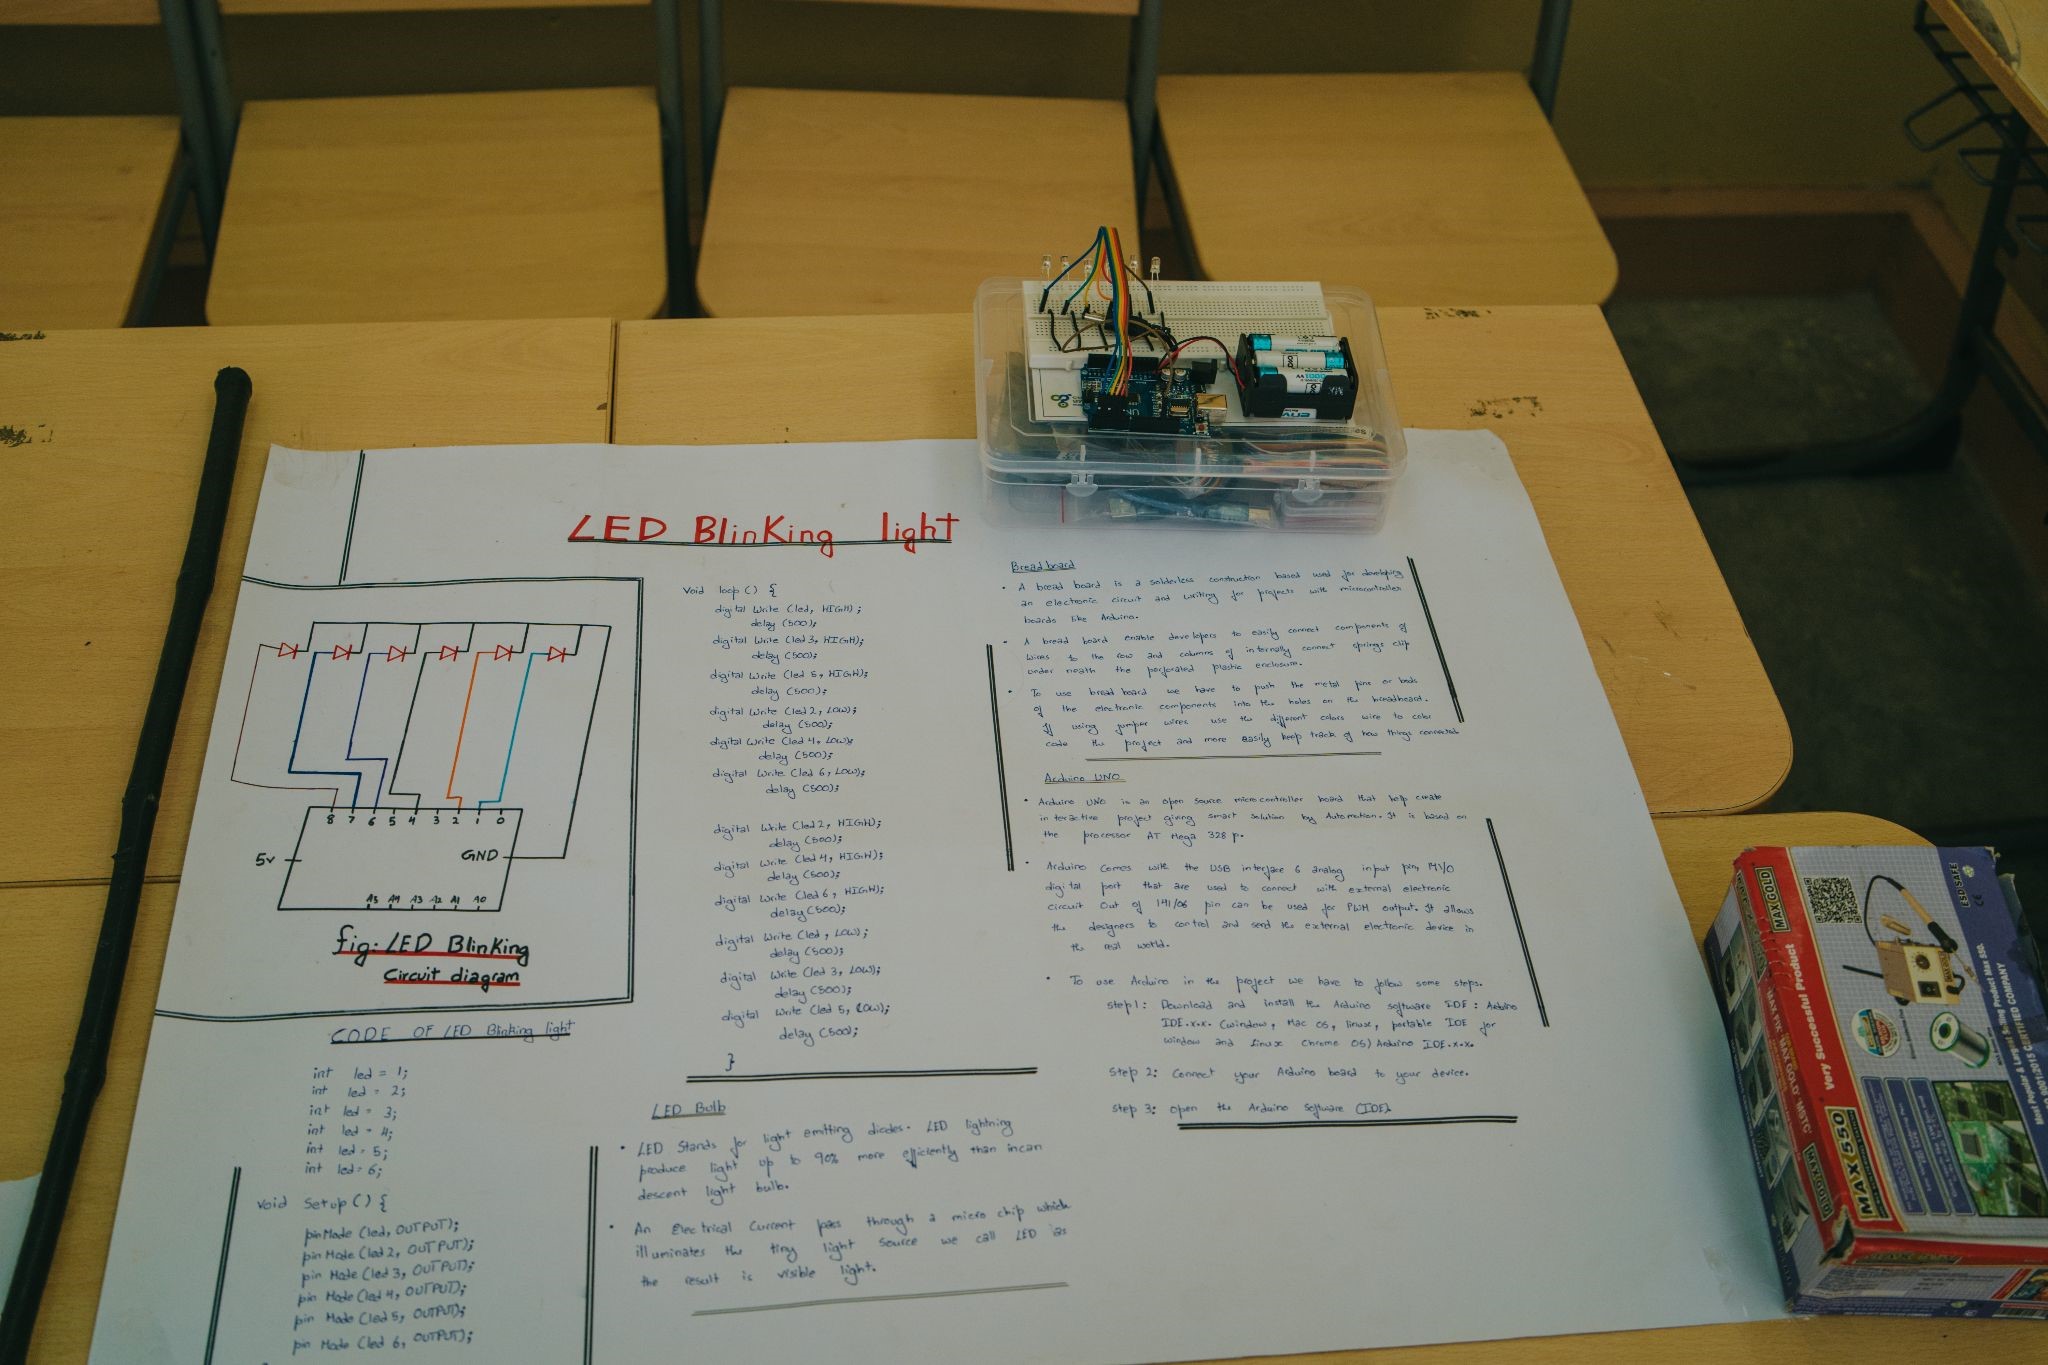 LED Blinking light
8 7 6 5 4 3 2 1 0
5v
GND
A5 A4 A3 A2 A1 A0
fig: LED Blinking
Circuit diagram
CODE OF LED Blinking light
int led = 1;
int led = 2;
int led = 3;
int led = 4;
int led = 5;
int led = 6;
void setup() {
pinMode (led, OUTPUT);
pin Mode (led 2, OUTPUT);
pin Mode (led 3, OUTPUT);
pin Mode (led 4, OUTPUT);
pin Mode (led 5, OUTPUT);
pin Mode (led 6, OUTPUT);
Void loop () {
digital Write (led, HIGH);
delay (500);
digital Write (led 3, HIGH);
delay (500);
digital Write (led 5, HIGH);
delay (500);
digital Write (led 2, LOW);
delay (500);
digital Write (led 4, LOW);
delay (500);
digital Write (led 6, LOW);
delay (500);
digital Write (led 2, HIGH);
delay (500);
digital Write (led 4, HIGH);
delay (500);
digital Write (led 6, HIGH);
delay (500);
digital Write (led, LOW);
delay (500);
digital Write (led 3, LOW);
delay (500);
digital Write (led 5, LOW);
delay (500);
}
LED Bulb
• LED Stands for light emitting diodes. LED lightning
produce light up to 90% more efficiently than incan
descent light bulb.
• An Electrical Current pass through a micro chip which
illuminates the tiny light source we call LED as
the result is visible light.
Bread board
• A bread board is a solderless construction based used for developing
an electronic circuit and writing for projects with microcontroller
boards like Arduino.
• A bread board enable developers to easily connect components of
wires to the row and columns of internally connect springs clip
under neath the perforated plastic enclosure.
• To use bread board we have to push the metal pins or
of the electronic components into the holes on the breadboard.
If using jumper wires use the different colors wire to color
code the project and more easily keep track of how things connected
Arduino UNO
• Arduino UNO is an open source microcontroller board that help create
interactive project giving smart solution by Automation. It is based on
the processor AT Mega 328 p.
• Arduino comes with the USB interface 6 analog input pin, 14 I/O
digital port that are used to connect with external electronic
circuit. Out of 14I/O6 pin can be used for PWM output. It allows
the designers to control and send the external electronic device in
the real world.
• To use Arduino in the project we have to follow some steps.
step 1: Download and install the Arduino software IDE: Arduino
IDE.x.x. (window, Mac OS, linux, portable IDE for
window and Linux Chrome OS) Arduino IDE.x.x.
Step 2: Connect your Arduino board to your device.
Step 3: Open the Arduino Software (IDE).
MAX GOLD
ESD SAFE
Very Successful Product
MAX 550
Most Popular & Largest Selling Product Max 550.
9001:2015 CERTIFIED COMPANY
MAXGOLD